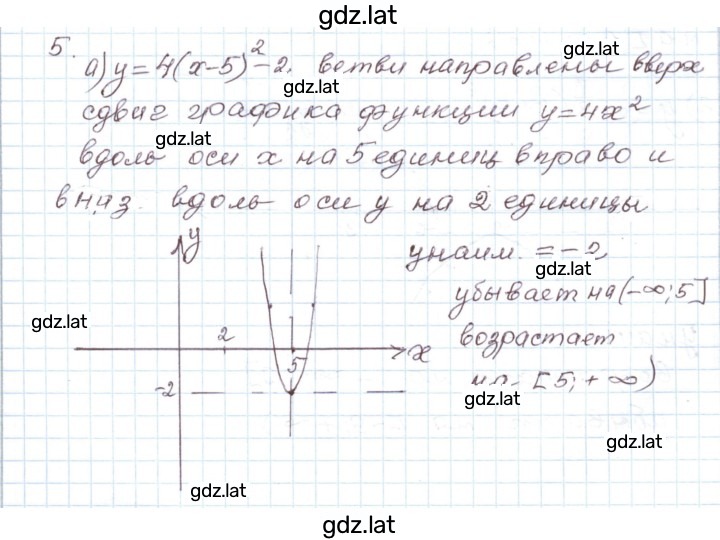 gdz.lat
5.
a) y = 4(x-5)² - 2. ветви направлены вверх
gdz.lat
gdz.lat
сдвиг графика функции y = 4x²
gdz.lat
вдоль оси x на 5 единиц вправо и
вниз вдоль оси y на 2 единицы
y
yнаим. = -2,
gdz.lat
убывает на (-∞; 5]
gdz.lat
2
возрастает
x
5
-2
на [5; +∞)
gdz.lat
gdz.lat
gdz.lat
gdz.lat